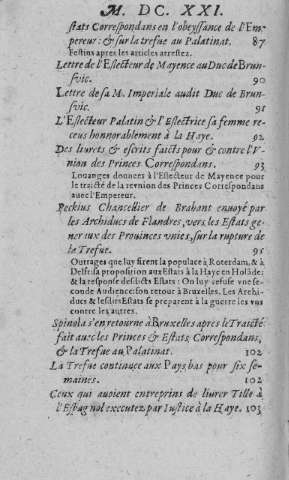 M. DC. XXI.
stats Correspondans en l'obeyssance de l'Em-
pereur: & sur la trefue au Palatinat. 87
Festins apres les articles arrestez.
Lettre de l'Eslecteur de Mayence au Duc de Brun-
svic. 90
Lettre de sa M. Imperiale audit Duc de Brun-
svic. 91
L'Eslecteur Palatin & l'Eslectrice sa femme re-
ceus honnorablement à la Haye. 92
Des liurets & escrits faicts pour & contre l'V-
nion des Princes Correspondans. 93
Loüanges donnees à l'Eslecteur de Mayence pour
le traicté de la revnion des Princes Correspondans
auec l'Empereur.
Peckius Chancelier de Brabant enuoyé par
les Archiducs de Flandres, vers les Estats ge-
neraux des Prouinces vnies, sur la rupture de
la Trefue. 95
Outrages que luy firent la populace à Roterdam, & à
Delft: sa proposition aux Estats à la Haye en Holāde:
& la response desdicts Estats: On luy refuse vne se-
conde Audience: son retour à Bruxelles. Les Archi-
ducs & lesdits Estats se preparent à la guerre les vns
contre les autres.
Spinola s'en retourne à Bruxelles apres le Traicté
fait auec les Princes & Estats, Correspondans,
& la Trefue au Palatinat. 102
La Trefue continuee aux Pays bas pour six se-
maines. 102
Ceux qui auoient entreprins de liurer Tille à
l'Espagnol executez par Iustice à la Haye. 103